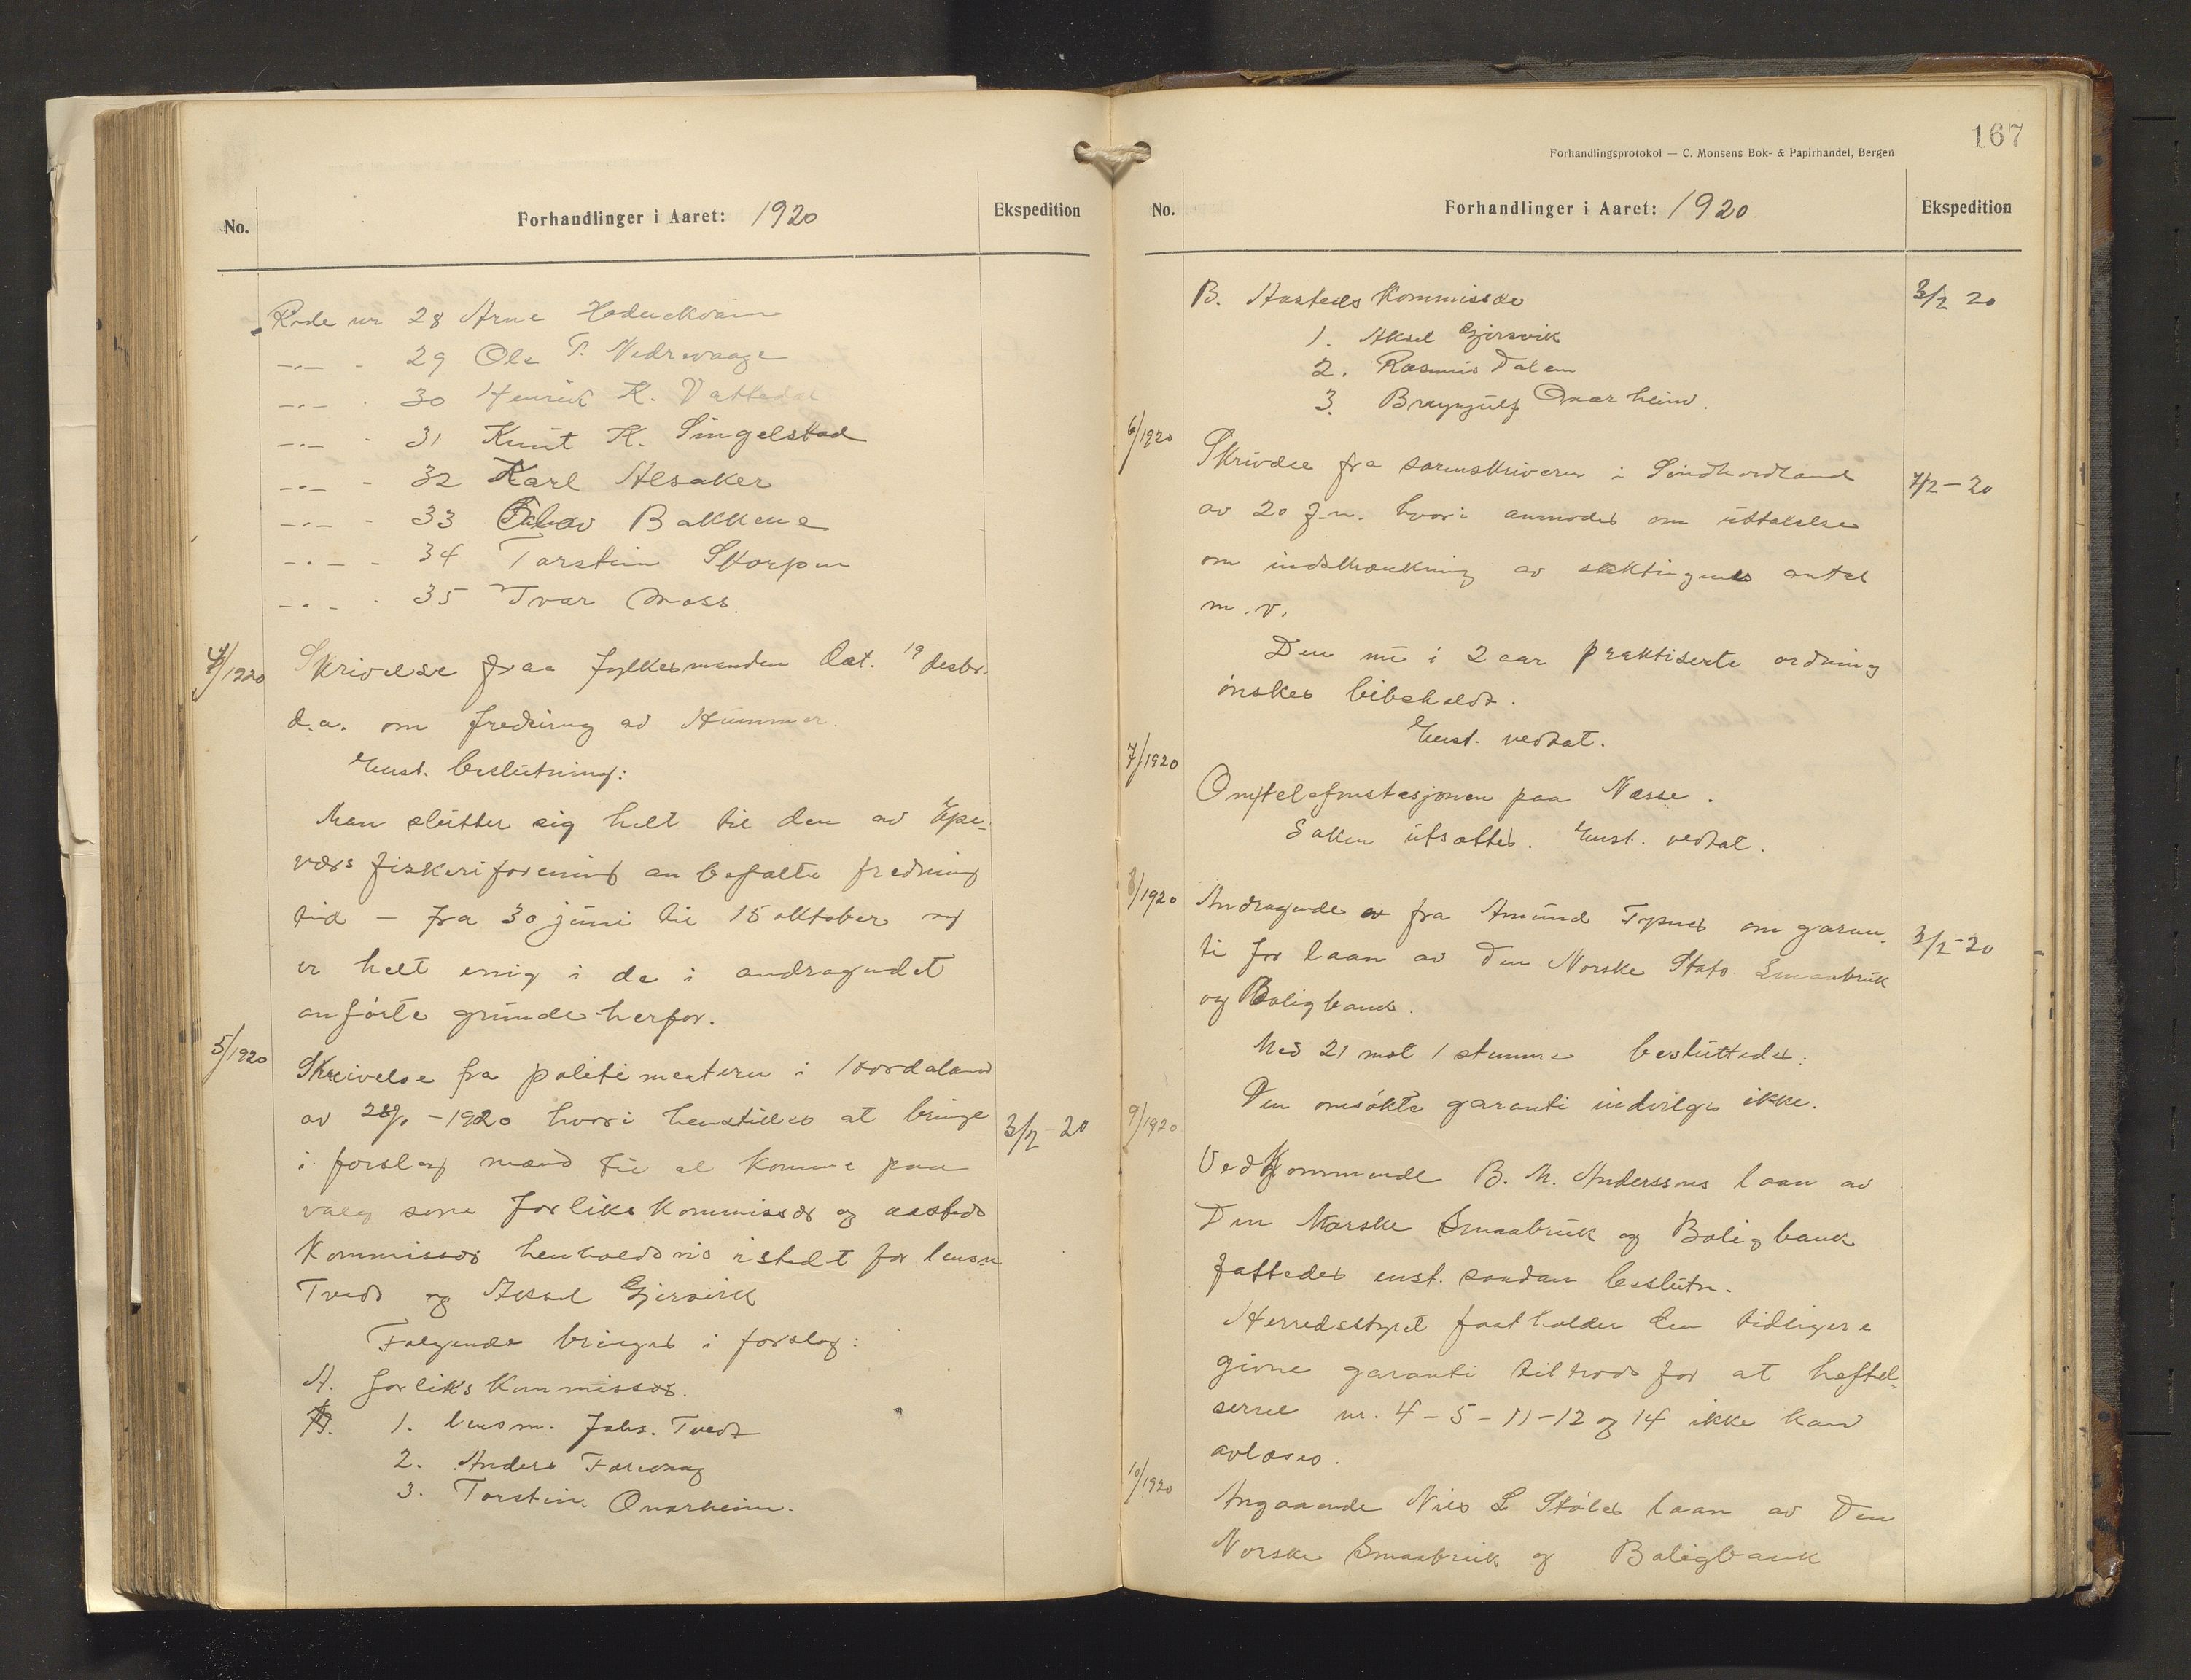 No.
Forhandlinger i Aaret: 1920
Ekspedition
Rode nr 28 Arne
—.— - 29 Ole T. Nedrevaage
—.— - 30 Henrik K. Vattedal
—.— - 31 Knut K. Singelstad
—.— - 32 Karl Alsaker
—.— - 33 Bakkene
—.— - 34 Torstein Skorpen
—.— - 35 Ivar Moss.
4/1920 Skrivelse fraa fylkesmanden dat. 19 desbr.
d.a. om fredning av Hummer.
Enst. beslutning:
Man slutter sig helt til den av Espe-
værs fiskeriforening anbefalte fredning
tid — fra 30 juni til 15 oktober og
er helt enig i de i andragendet
anførte grunde herfor.
5/1920 Skrivelse fra politimesteren i Hordaland
av 28/1 - 1920 hvori henstilles at bringe 3/2 20
i forslag mænd til at komme paa
valg som forlikskommissær og aasteds
kommissær henholdsvis istedt for lensm
Tvedt og Aksel Gjersvik
Følgende bringes i forslag:
A. forlikskommissær.
1. lensm. Johs. Tvedt
2. Anders Færevaag
3. Torstein Onarheim.
167
Forhandlingsprotokol — C. Monsens Bok- & Papirhandel, Bergen
No.
Forhandlinger i Aaret: 1920
Ekspedition
B. Aasteds Kommissær 3/2 20
1. Aksel Gjersvik
2. Rasmus Dalen
3. Brynjulf Onarheim.
6/1920
Skrivelse fra sorenskriveren i Sundhordland 7/2 - 20
av 20 f.m. hvori anmodes om uttalelse
om indskrænkning av sektingenes antal
m.v.
Den nu i 2 aar praktiserte ordning
ønskes bibeholdt.
Enst. vedtat.
7/1920
Om telefonstasjonen paa Næsse.
Saken utsattes. Enst. vedtat.
8/1920 Andragende fra Amund Typnes om garan-
ti for laan av Den Norske Stats Smaabruk 3/2-20
og Boligbank.
Med 21 mot 1 stemme besluttedes:
Den omsøkte garanti indvilges ikke.
9/1920
Vedkommende B. M. Anderssens laan av
Den Norske Smaabruk og Boligbank
fattedes enst. saadan beslutn.
Herredsstyret fastholder den tidligere
givne garanti tiltrods for at heftel-
serne nr. 4 - 5 - 11 - 12 og 14 ikke kan
avløses.
10/1920
Angaaende Nils L Støles laan av Den
Norske Smaabruk og Boligbank